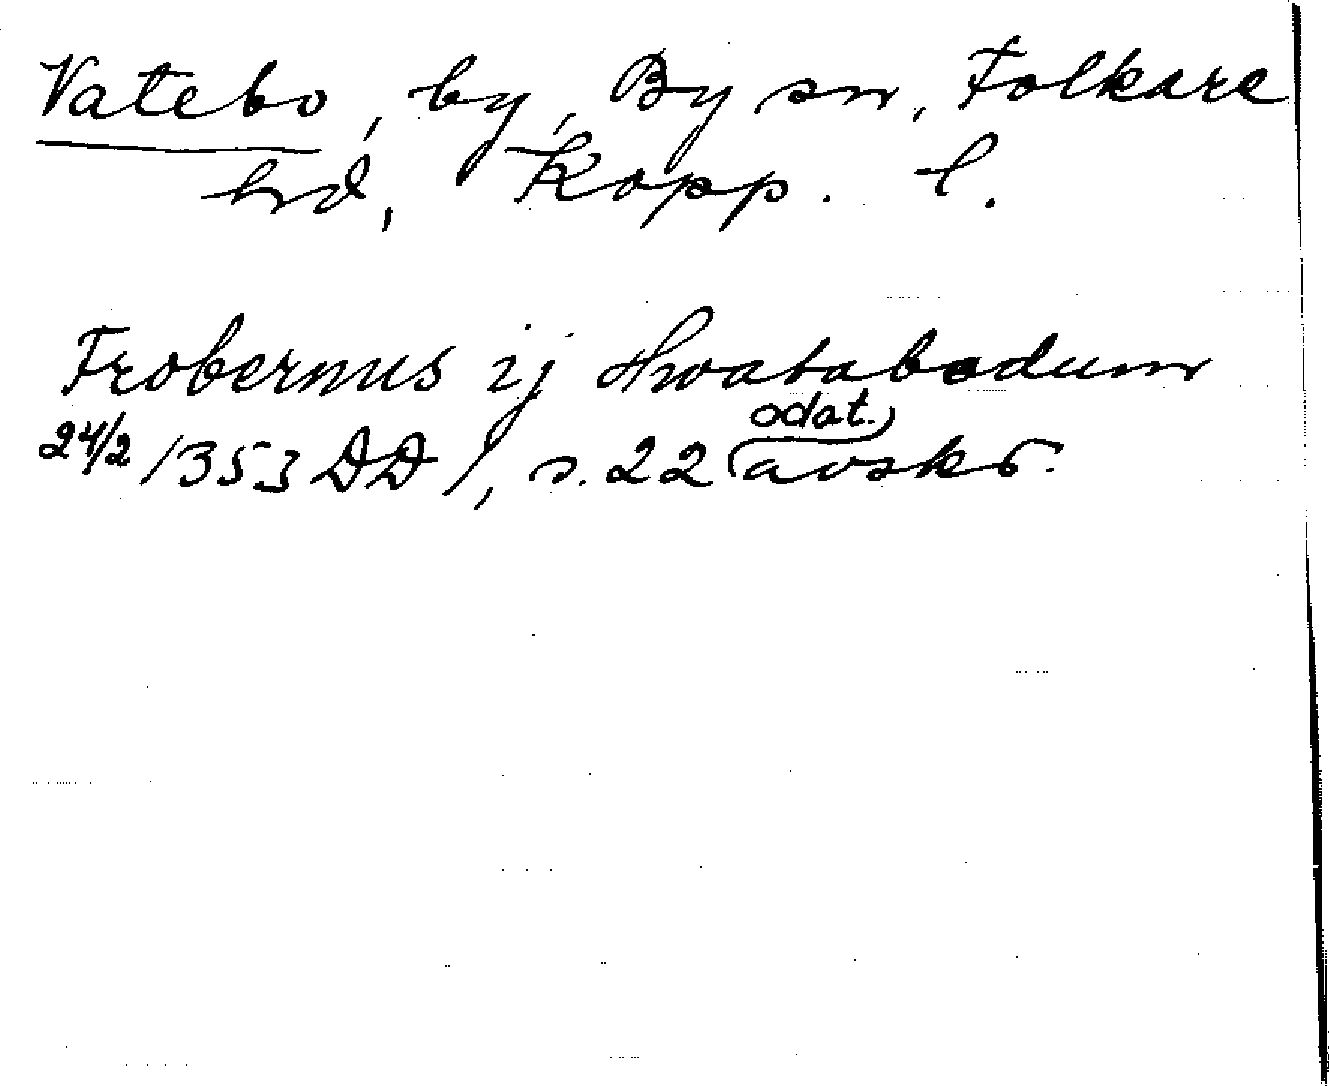 Vatebo, by, By sn, Folkare
hd, Kopp. l.
Frobernus ij Hwatabodum
24/2 1353 DD 1, s. 22 (avskr.
odat.)